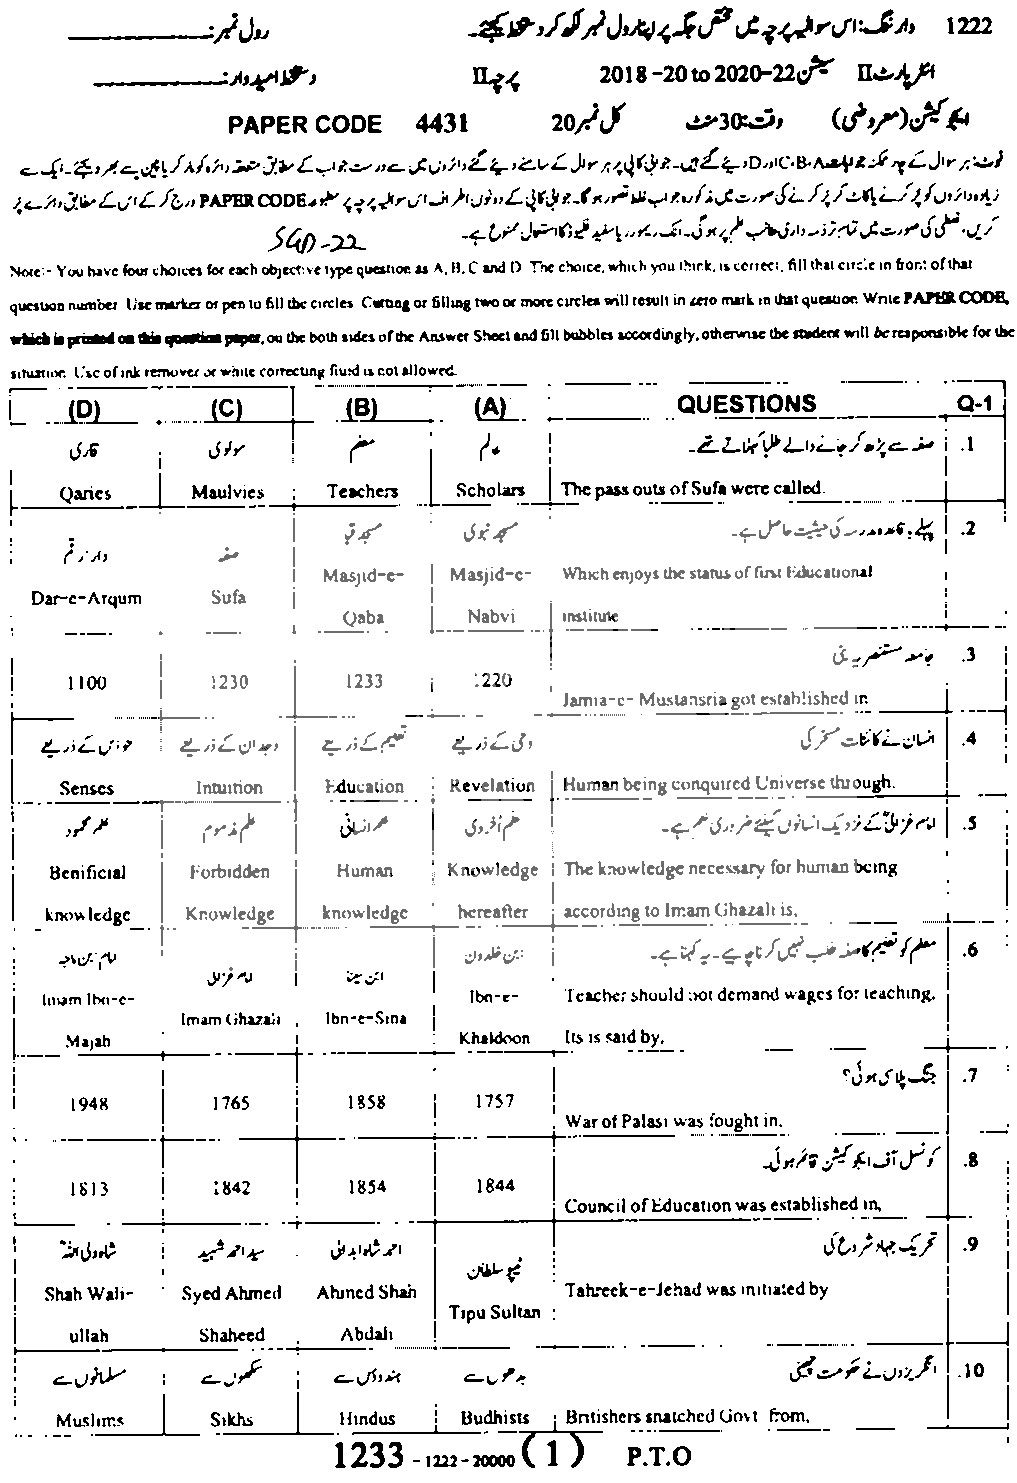 1222 وارننگ: اس سوالیہ پرچہ میں مختص جگہ پر اپنا رول نمبر لکھ کر دستخط کیجئے۔ رول نمبر:
انٹر پارٹ II سیشن 2020-22 to 2018-20 پرچہ II دستخط امیدوار:
ایجوکیشن (معروضی) وقت: 30 منٹ کل نمبر 20 PAPER CODE 4431
نوٹ: ہر سوال کے چار ممکنہ جوابات A، B، C اور D دیئے گئے ہیں۔ جوابی کاپی پر ہر سوال کے سامنے دیئے گئے دائروں میں سے درست جواب کے مطابق متعلقہ دائرہ کو مارکر یا پین سے بھر دیجئے۔ ایک سے
زیادہ دائروں کو پُر کرنے یا کاٹ کر پُر کرنے کی صورت میں مذکورہ جواب غلط تصور ہو گا۔ جوابی کاپی کے دونوں اطراف اس سوالیہ پرچہ پر مطبوعہ PAPER CODE درج کر کے اس کے مطابق دائرے پُر
کریں، غلطی کی صورت میں تمام تر ذمہ داری طالب علم پر ہو گی۔ انک ریموور یا سفید فلیوڈ کا استعمال ممنوع ہے۔
SGD-22
Note:- You have four choices for each objective type question as A, B, C and D. The choice, which you think, is correct, fill that circle in front of that
question number. Use marker or pen to fill the circles. Cutting or filling two or more circles will result in zero mark in that question. Write PAPER CODE,
which is printed on this question paper, on the both sides of the Answer Sheet and fill bubbles accordingly, otherwise the student will be responsible for the
situation. Use of ink remover or white correcting fluid is not allowed.
(D) (C) (B) (A) QUESTIONS Q-1
قاری مولوی معلم عالم صفہ سے پڑھ کر جانے والے طلبا کہلاتے تھے۔ .1
Qaries Maulvies Teachers Scholars The pass outs of Sufa were called.
دار ارقم صفہ مسجد قبا مسجد نبوی پہلے باقاعدہ مدرسہ کی حیثیت حاصل ہے۔ .2
Dar-e-Arqum Sufa Masjid-e- Masjid-e- Which enjoys the status of first Educational
Qaba Nabvi institute
جامعہ مستنصریہ بنی .3
1100 1230 1233 1220 Jamia-e- Mustansria got established in
حواس کے ذریعے وجدان کے ذریعے تعلیم کے ذریعے وحی کے ذریعے انسان نے کائنات مسخر کی .4
Senses Intuition Education Revelation Human being conquired Universe through.
علم محمود علم مذموم علم انسانی علم اُخروی امام غزالیؒ کے نزدیک انسانوں کیلئے ضروری علم ہے۔ .5
Benificial Forbidden Human Knowledge The knowledge necessary for human being
knowledge Knowledge knowledge hereafter according to Imam Ghazali is,
امام ابن ماجہ امام غزالی ابن سینا ابن خلدون معلم کو تعلیم کا صلہ طلب نہیں کرنا چاہیے۔ یہ کہنا ہے۔ .6
Imam Ibn-e- Imam Ghazali Ibn-e-Sina Ibn-e- Teacher should not demand wages for teaching.
Majah Khaldoon Its is said by,
جنگ پلاسی ہوئی؟ .7
1948 1765 1858 1757 War of Palasi was fought in,
کونسل آف ایجوکیشن قائم ہوئی۔ .8
1813 1842 1854 1844 Council of Education was established in,
شاہ ولی اللہؒ سید احمد شہید احمد شاہ ابدالی ٹیپو سلطان تحریک جہاد شروع کی .9
Shah Wali- Syed Ahmed Ahmed Shah Tipu Sultan Tahreek-e-Jehad was initiated by
ullah Shaheed Abdali
مسلمانوں سے سکھوں سے ہندوؤں سے بدھوں سے انگریزوں نے حکومت چھینی .10
Muslims Sikhs Hindus Budhists Britishers snatched Govt from,
1233 - 1222 - 20000 (1) P.T.O